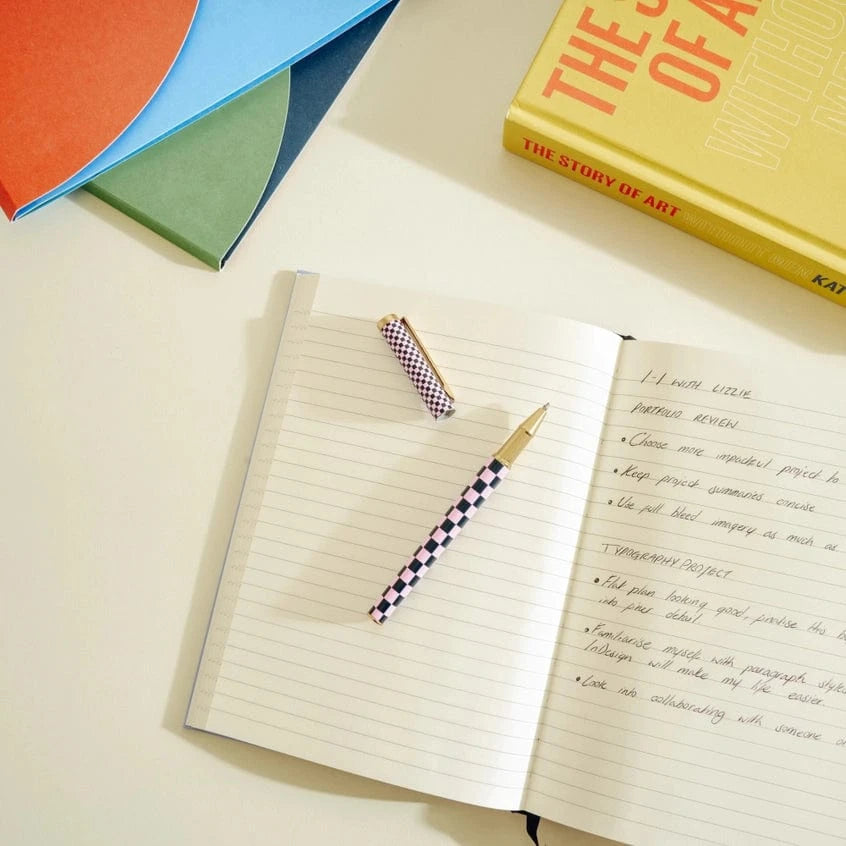 THE S
OF A
WITHO
ME
THE STORY OF ART WITHOUT MEN KAT
1-1 WITH LIZZIE
PORTFOLIO REVIEW
• Choose more impactful project to
• Keep project summaries concise
• Use full bleed imagery as much as
TYPOGRAPHY PROJECT
• Flat plan looking good, finalise this
into finer detail.
• Familiarise myself with paragraph styles
InDesign will make my life easier.
• Look into collaborating with someone